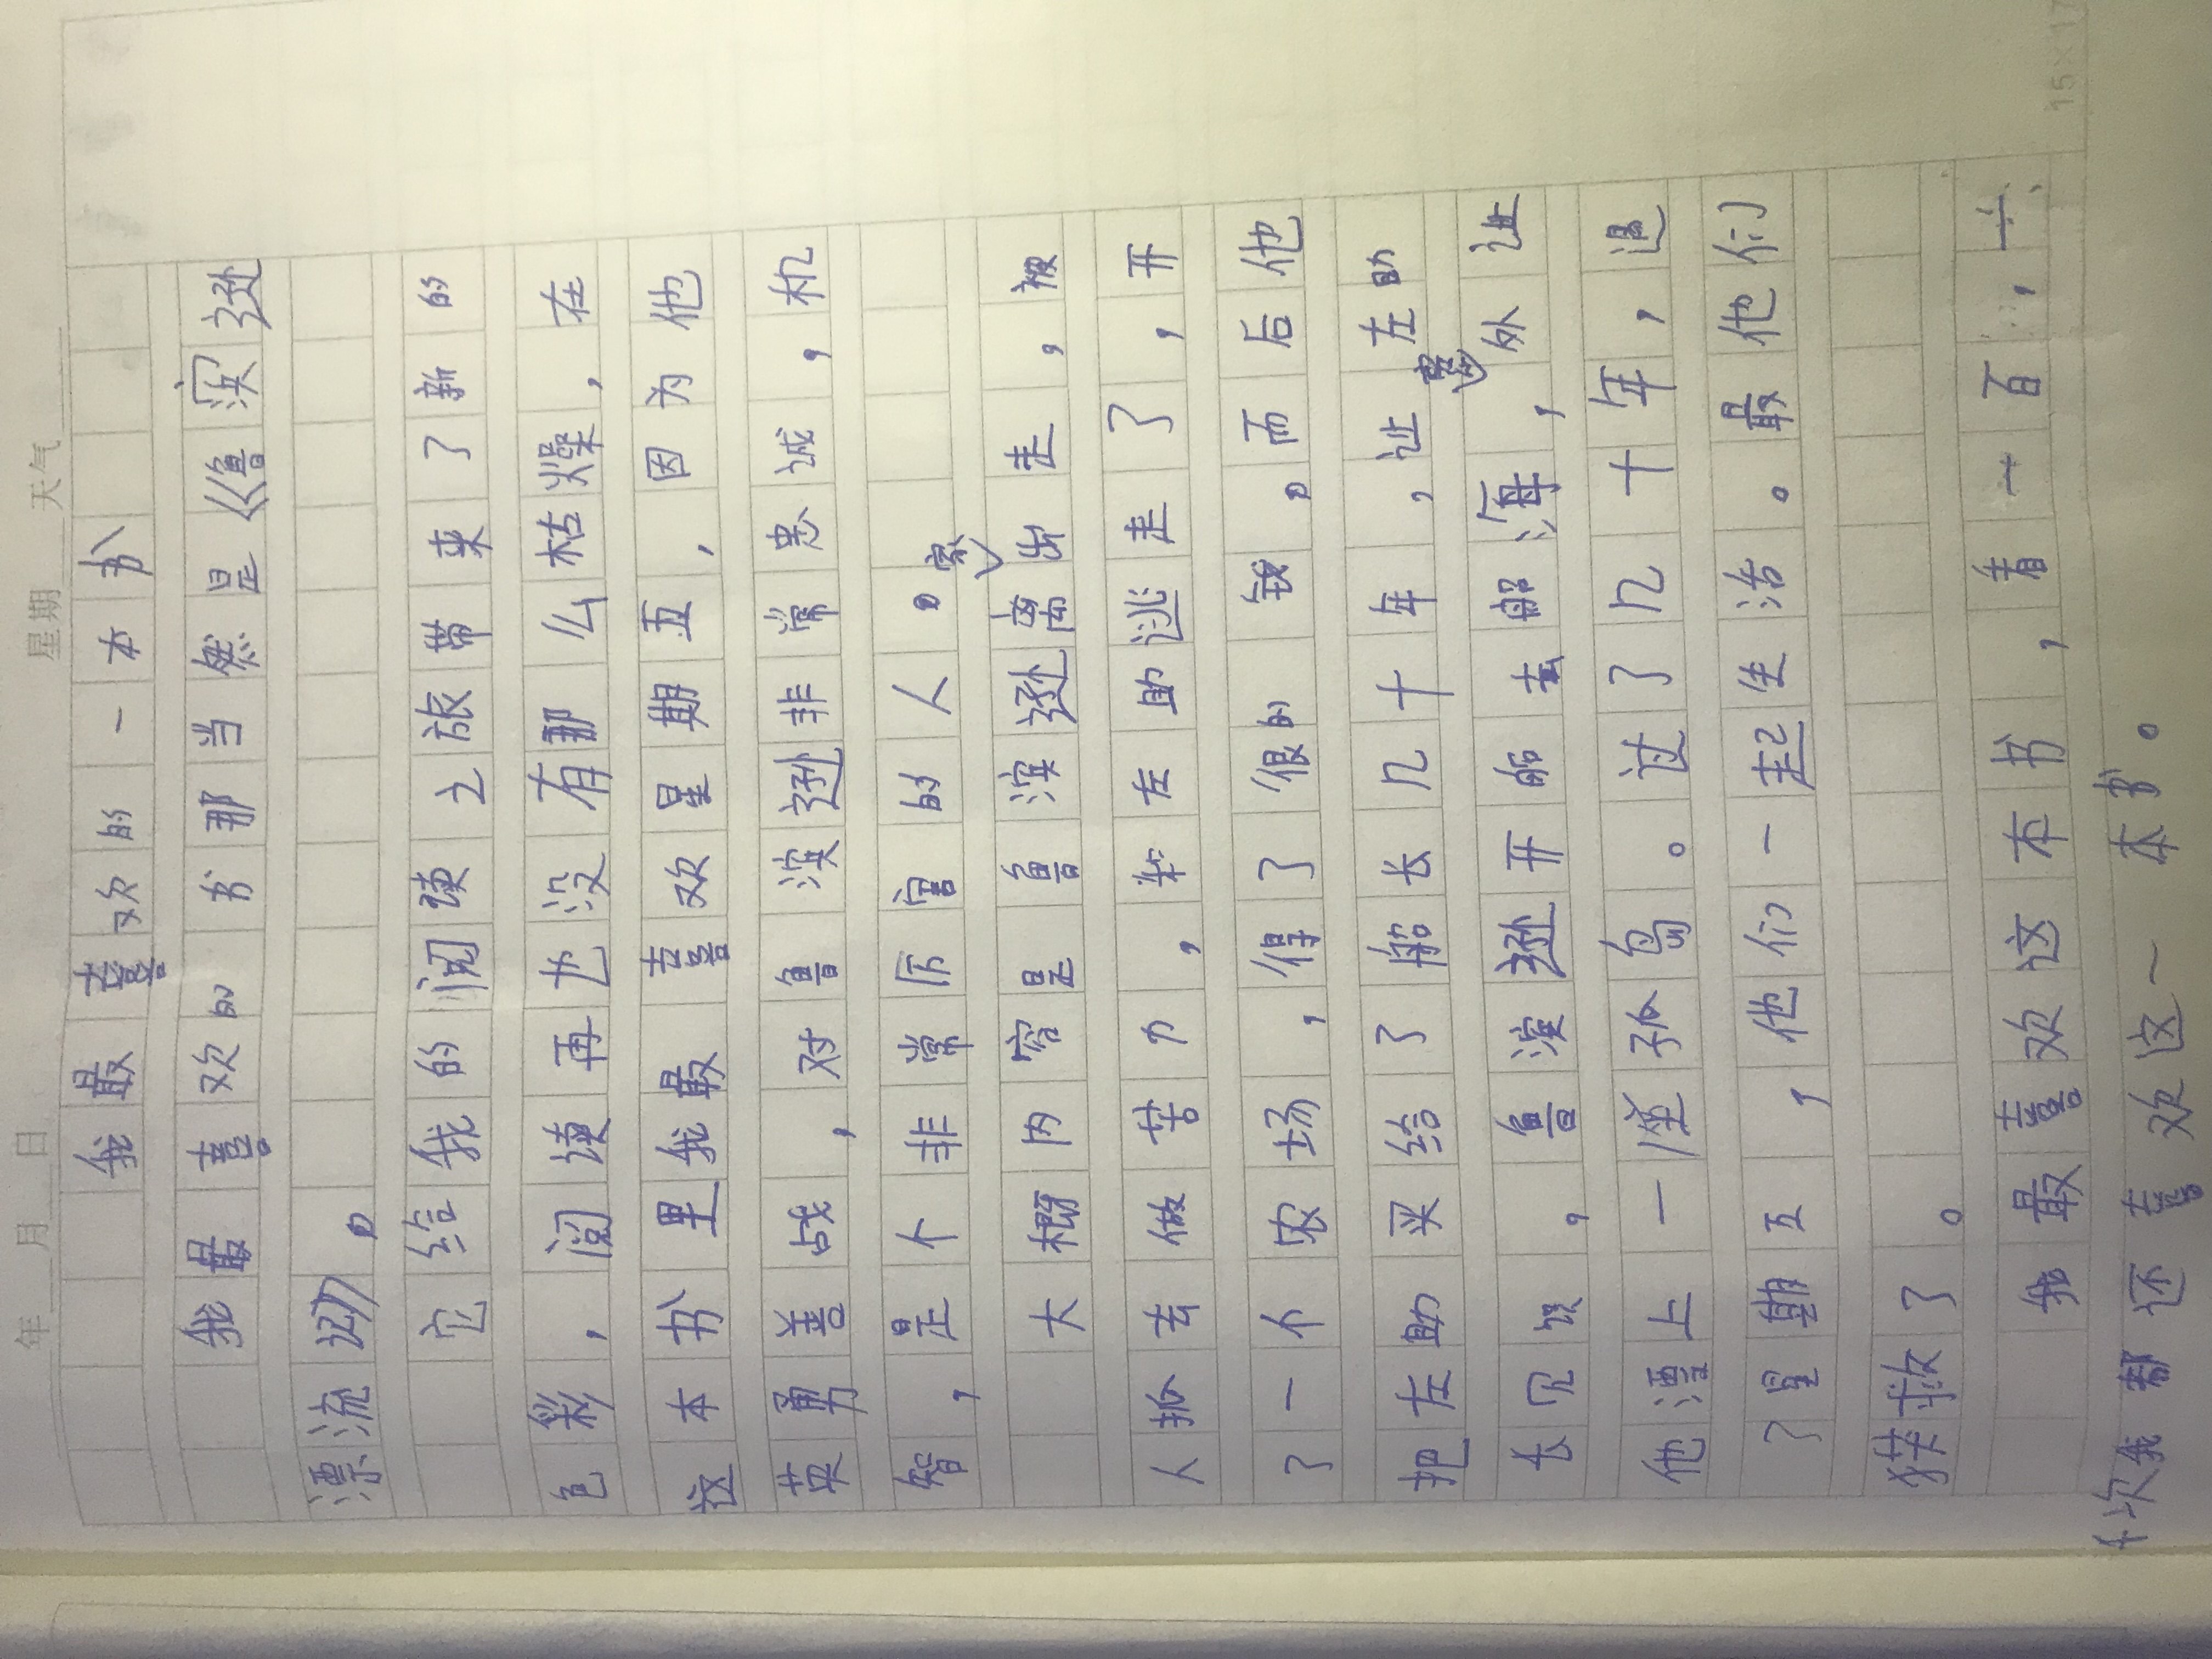 年 月 日 星期 天气
我最喜欢的一本书
我最喜欢的书那当然是《鲁滨逊
漂流记》。
它给我的阅读之旅带来了新的
色彩，阅读再也没有那么枯燥，在
这本书里我最喜欢星期五，因为他
英勇善战，对鲁滨逊非常忠诚，机
智，是个非常厉害的人。
大概内容是鲁滨逊离家出走，被
人抓去做苦力，和左助逃走了，开
了一个农场，得了很的钱。而后他
把左助买给了船长几十年，让左助
长见识。鲁滨逊开船去船海，意外让
他漂上一座孤岛。过了几十年，遇
了星期五，他们一起生活。最他们
获救了。
我最喜欢这本书，看一百，
千次我都还喜欢这一本书。
15×17